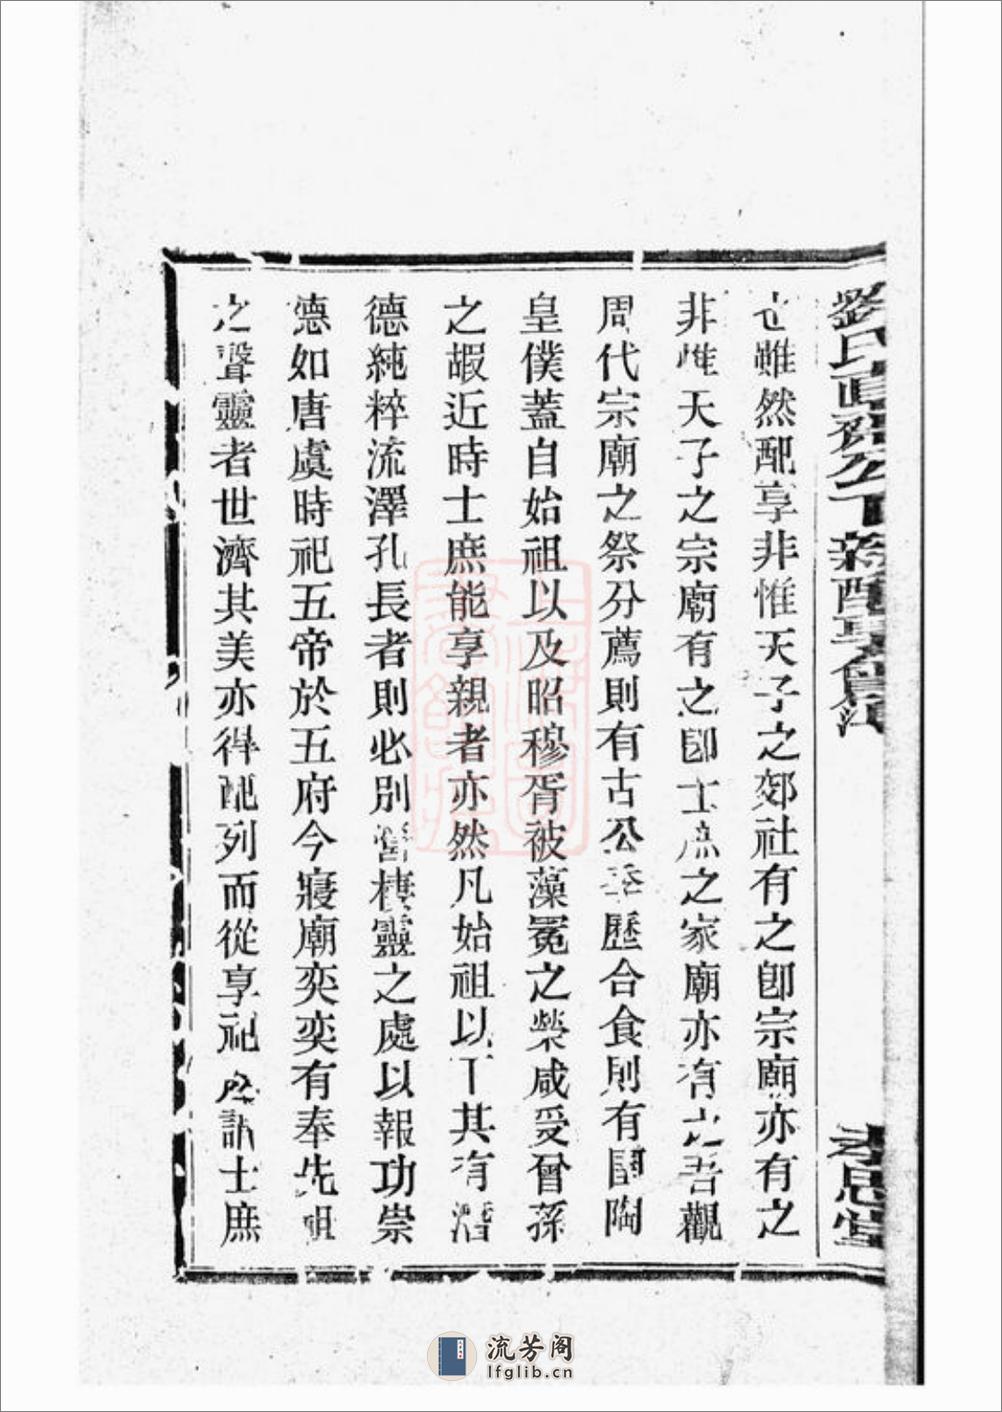 劉氏直殘公下新配享會江
孝思堂
也雖然配享非惟天子之郊社有之卽宗廟亦有之
非惟天子之宗廟有之卽士庶之家廟亦有之吾觀
周代宗廟之祭分薦則有古公季歷合食則有閟陶
皇僕蓋自始祖以及昭穆胥被藻冕之榮咸受曾孫
之嘏近時士庶能享親者亦然凡始祖以下其有潛
德純粹流澤孔長者則必別營棲靈之處以報功崇
德如唐虞時祀五帝於五府今寢廟奕奕有奉先祖
之聲靈者世濟其美亦得配列而從享祀 孰謂士庶
流芳阁
lfglib.cn